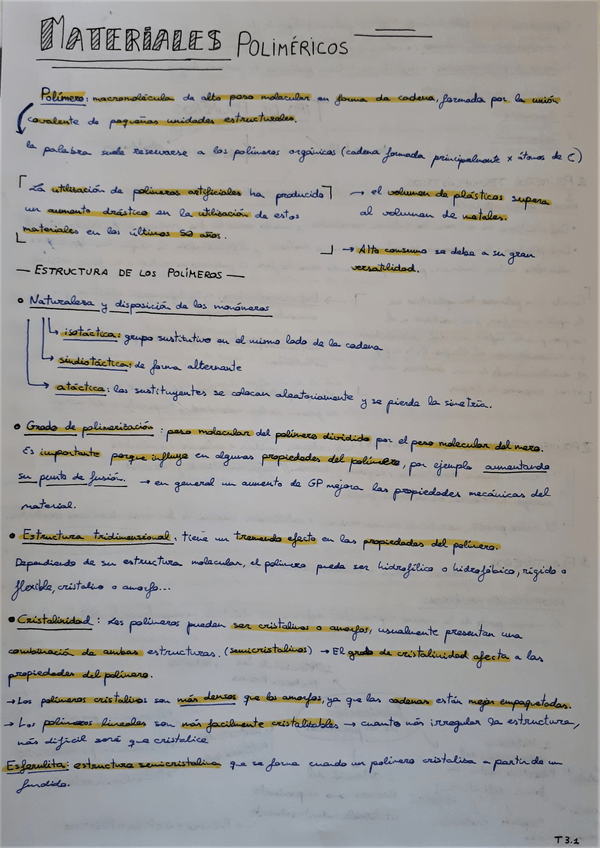 MATERIALES POLIMÉRICOS
Polímero: macromolécula de alto peso molecular en forma de cadena, formada por la unión
covalente de pequeñas unidades estructurales.
la palabra suele reservarse a los polímeros orgánicos (cadena formada principalmente x átomos de C)
La utilización de polímeros artificiales ha producido
un aumento drástico en la utilización de estos
materiales en los últimos 50 años.
→ el volumen de plásticos supera
al volumen de metales.
→ Alto consumo se debe a su gran
versatilidad.
— ESTRUCTURA DE LOS POLÍMEROS —
• Naturaleza y disposición de los monómeros
→ isotáctica: grupo sustitutivo en el mismo lado de la cadena
→ sindiotáctica: de forma alternante
→ atáctica: los sustituyentes se colocan aleatoriamente y se pierde la simetría.
• Grado de polimerización: peso molecular del polímero dividido por el peso molecular del mero.
Es importante porque influye en algunas propiedades del polímero, por ejemplo aumentando
su punto de fusión. → en general un aumento de GP mejora las propiedades mecánicas del
material.
• Estructura tridimensional: tiene un tremendo efecto en las propiedades del polímero.
Dependiendo de su estructura molecular, el polímero puede ser hidrofílico o hidrofóbico, rígido o
flexible, cristalino o amorfo...
• Cristalinidad: Los polímeros pueden ser cristalinos o amorfos, usualmente presentan una
combinación de ambas estructuras. (semicristalinos) → El grado de cristalinidad afecta a las
propiedades del polímero.
→ Los polímeros cristalinos son más densos que los amorfos, ya que las cadenas están mejor empaquetadas.
→ Los polímeros lineales son más facilmente cristalizables → cuanto más irregular la estructura,
más difícil será que cristalice
Esferulita: estructura semicristalina que se forma cuando un polímero cristaliza a partir de un
fundido.
T 3.1